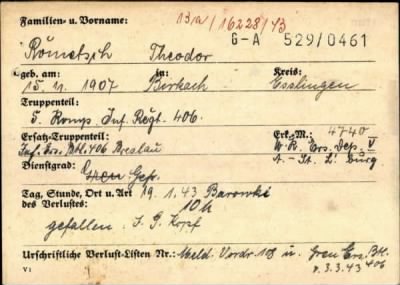 Familien- u. Vorname: 13a/16228/43
Römetsch Theodor G-A 529/0461
geb. am: in: Kreis:
15. 11. 1907 Birkach Esslingen
Truppenteil:
5. Komp. Inf. Regt. 406.
Ersatz-Truppenteil: Erk.-M.: 4740
Inf. Ers. Btl. 406 Breslau W. K. Ers. Dep. V
Dienstgrad: Gren Gefr. A.-St. L'burg
Tag, Stunde, Ort u. Art 19. 1. 43 Barowki
des Verlustes: 10 h
gefallen. I. G. Kopf
Urschriftliche Verlust-Listen Nr.: Meld. Vordr. 108 u. Gren Ers. Btl.
406
v. 3. 3. 43
V1